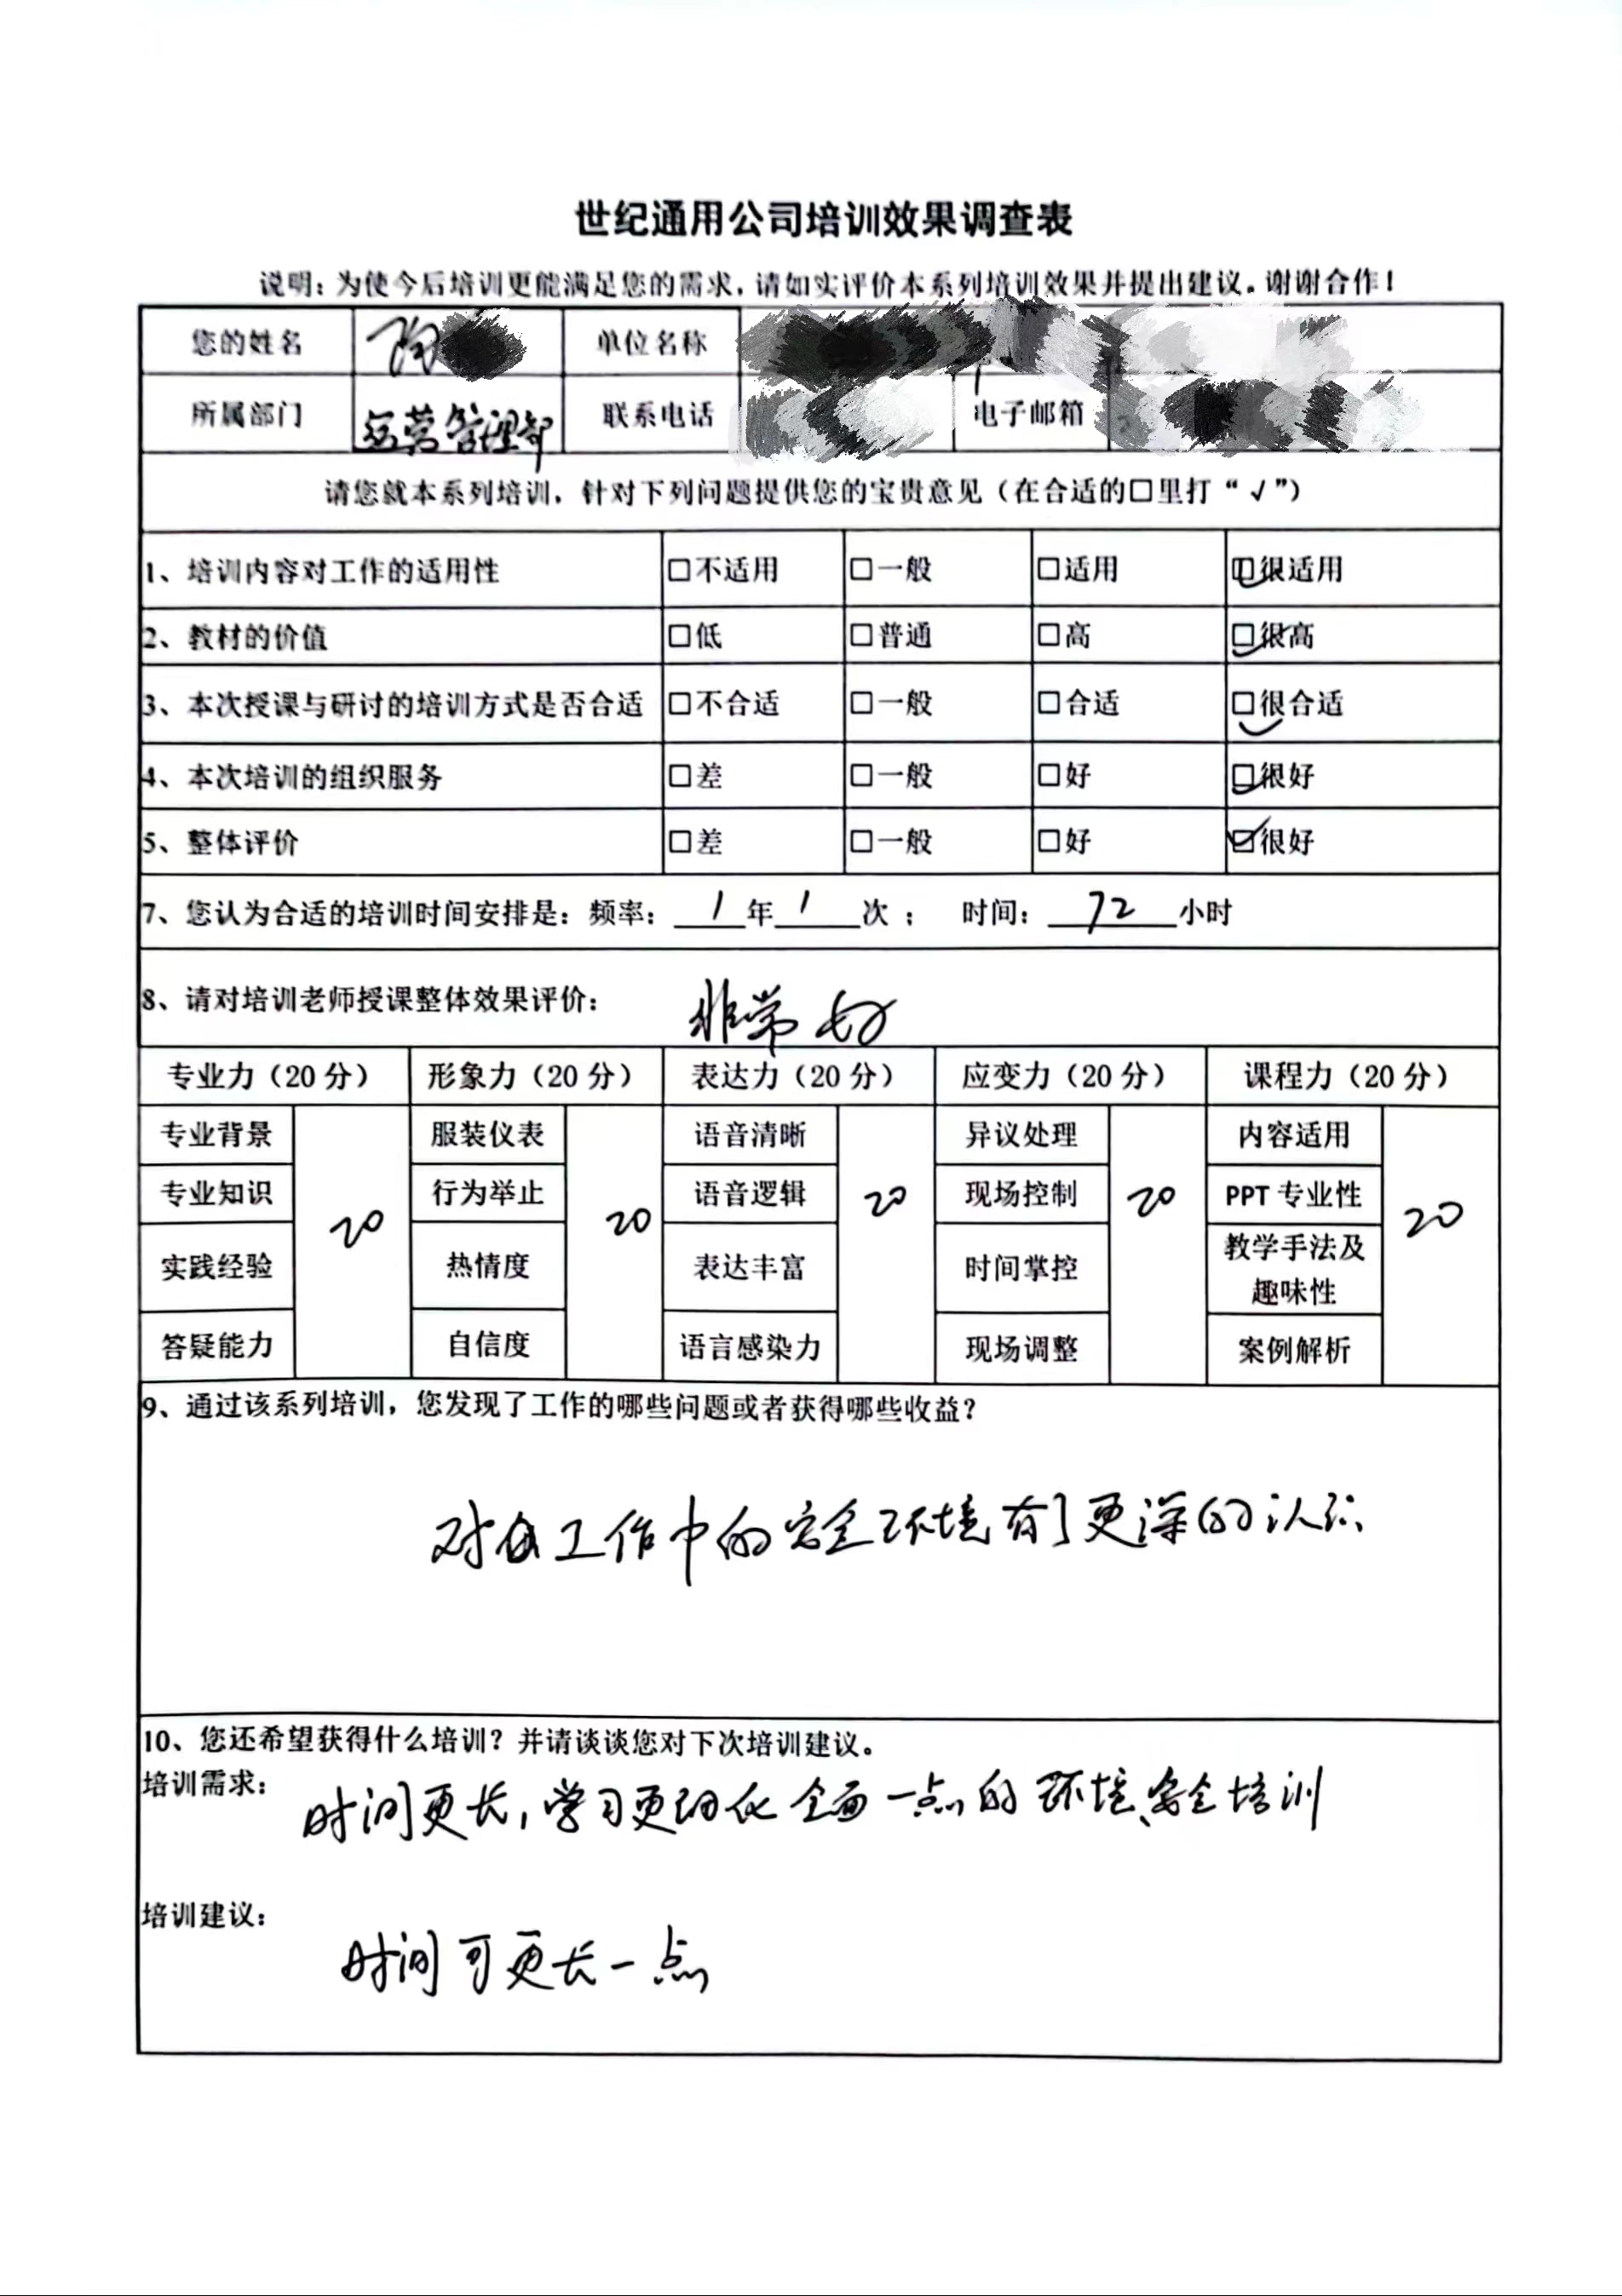 世纪通用公司培训效果调查表
说明：为使今后培训更能满足您的需求，请如实评价本系列培训效果并提出建议。谢谢合作！
您的姓名 单位名称
所属部门 运营管理部 联系电话 电子邮箱
请您就本系列培训，针对下列问题提供您的宝贵意见（在合适的□里打“√”）
1、培训内容对工作的适用性 □不适用 □一般 □适用 ☑很适用
2、教材的价值 □低 □普通 □高 ☑很高
3、本次授课与研讨的培训方式是否合适 □不合适 □一般 □合适 ☑很合适
4、本次培训的组织服务 □差 □一般 □好 ☑很好
5、整体评价 □差 □一般 □好 ☑很好
7、您认为合适的培训时间安排是：频率：1年1次； 时间：72小时
8、请对培训老师授课整体效果评价： 非常好
专业力（20分） 形象力（20分） 表达力（20分） 应变力（20分） 课程力（20分）
专业背景 服装仪表 语音清晰 异议处理 内容适用
专业知识 行为举止 语音逻辑 现场控制 PPT专业性
20 20 20 20 20
实践经验 热情度 表达丰富 时间掌控 教学手法及
趣味性
答疑能力 自信度 语言感染力 现场调整 案例解析
9、通过该系列培训，您发现了工作的哪些问题或者获得哪些收益？
对 工作中的安全环境有了更深的认识
10、您还希望获得什么培训？并请谈谈您对下次培训建议。
培训需求：
时间更长，学习更细化全面一点的环境、安全培训
培训建议：
时间可更长一点